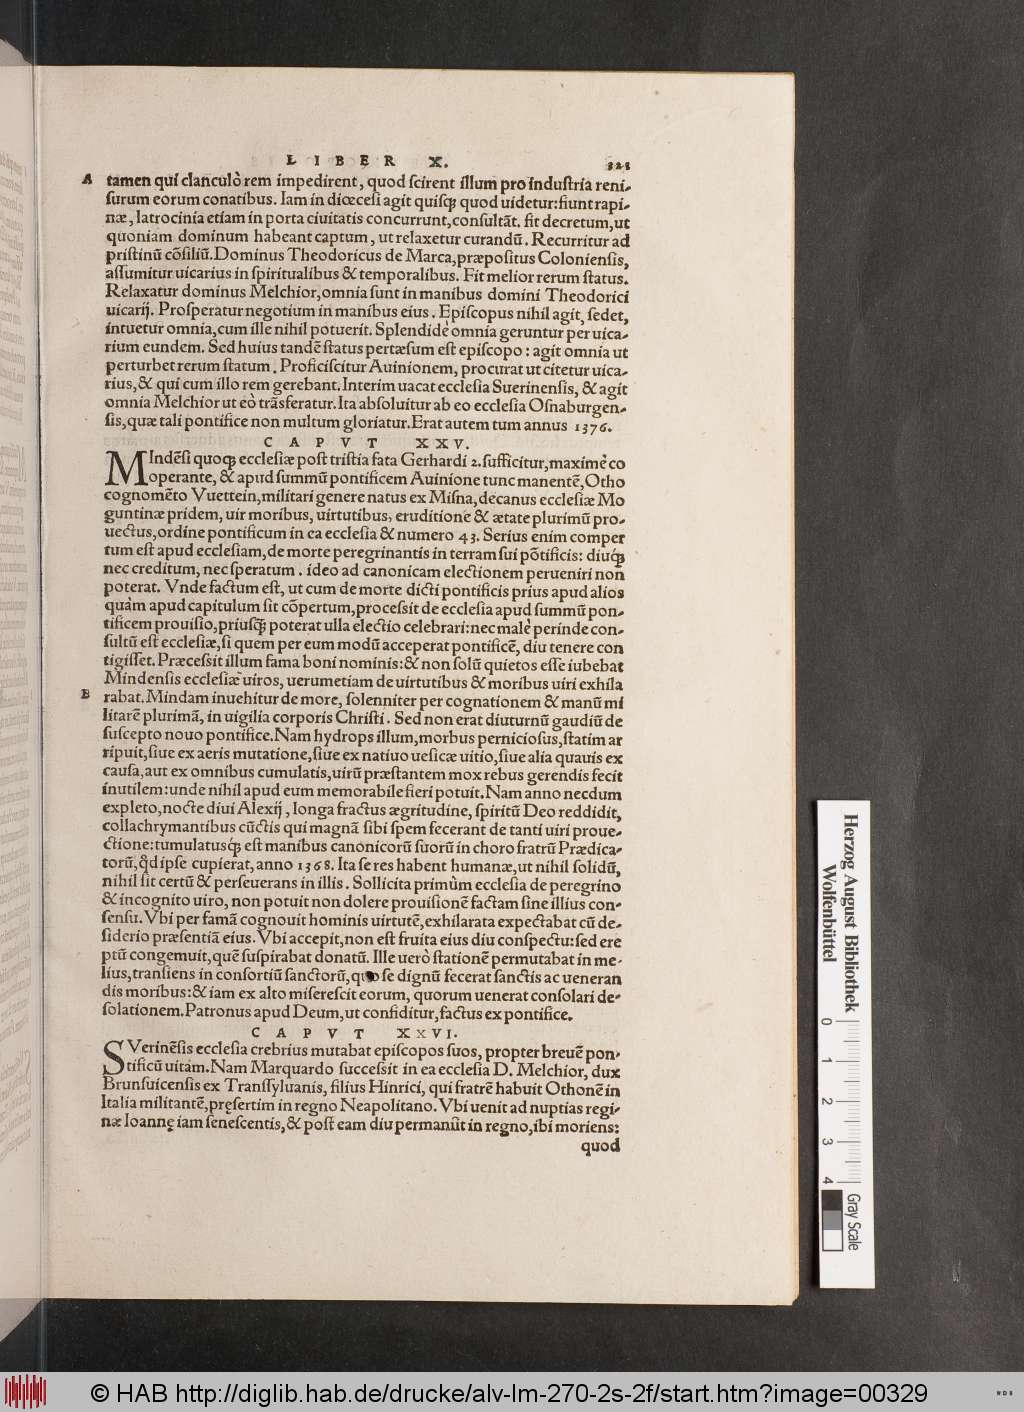 LIBER X. 323
A tamen qui clanculò rem impedirent, quod scirent illum pro industria reni-
surum eorum conatibus. Iam in diœcesi agit quisq; quod uidetur: fiunt rapi-
næ, latrocinia etiam in porta ciuitatis concurrunt, consultāt. fit decretum, ut
quoniam dominum habeant captum, ut relaxetur curandū. Recurritur ad
pristinū cōsiliū. Dominus Theodoricus de Marca, præpositus Coloniensis,
assumitur uicarius in spiritualibus & temporalibus. Fit melior rerum status.
Relaxatur dominus Melchior, omnia sunt in manibus domini Theodorici
uicarij. Prosperatur negotium in manibus eius. Episcopus nihil agit, sedet,
intuetur omnia, cum ille nihil potuerit. Splendide omnia geruntur per uica-
rium eundem. Sed huius tandē status pertæsum est episcopo: agit omnia ut
perturbet rerum statum. Proficiscitur Auinionem, procurat ut citetur uica-
rius, & qui cum illo rem gerebant. Interim uacat ecclesia Suerinensis, & agit
omnia Melchior ut eò trāsferatur. Ita absoluitur ab eo ecclesia Osnaburgen-
sis, quæ tali pontifice non multum gloriatur. Erat autem tum annus 1376.
CAPVT XXV.
MIndēsi quoq; ecclesiæ post tristia fata Gerhardi 2. sufficitur, maximè co
operante, & apud summū pontificem Auinione tunc manentē, Otho
cognomēto Vuettein, militari genere natus ex Misna, decanus ecclesiæ Mo
guntinæ pridem, uir moribus, uirtutibus, eruditione & ætate plurimū pro-
uectus, ordine pontificum in ea ecclesia & numero 43. Serius enim comper
tum est apud ecclesiam, de morte peregrinantis in terram sui pōtificis: diuq;
nec creditum, nec speratum. ideo ad canonicam electionem perueniri non
poterat. Vnde factum est, ut cum de morte dicti pontificis prius apud alios
quàm apud capitulum sit cōpertum, processit de ecclesia apud summū pon-
tificem prouisio, priusq̃ poterat ulla electio celebrari: nec malè perinde con-
sultū est ecclesiæ, si quem per eum modū acceperat pontificē, diu tenere con
tigisset. Præcessit illum fama boni nominis: & non solū quietos esse iubebat
Mindensis ecclesiæ uiros, uerumetiam de uirtutibus & moribus uiri exhila
B rabat. Mindam inuehitur de more, solenniter per cognationem & manū mi
litarē plurimā, in uigilia corporis Christi. Sed non erat diuturnū gaudiū de
suscepto nouo pontifice. Nam hydrops illum, morbus perniciosus, statim ar
ripuit, siue ex aeris mutatione, siue ex natiuo uesicæ uitio, siue alia quauis ex
causa, aut ex omnibus cumulatis, uirū præstantem mox rebus gerendis fecit
inutilem: unde nihil apud eum memorabile fieri potuit. Nam anno necdum
expleto, nocte diui Alexij, longa fractus ægritudine, spiritū Deo reddidit,
collachrymantibus cūctis qui magnā sibi spem fecerant de tanti uiri proue-
ctione: tumulatusq; est manibus canonicorū suorū in choro fratrū Prædica-
torū, qd ipse cupierat, anno 1368. Ita se res habent humanæ, ut nihil solidū,
nihil sit certū & perseuerans in illis. Sollicita primùm ecclesia de peregrino
& incognito uiro, non potuit non dolere prouisionē factam sine illius con-
sensu. Vbi per famā cognouit hominis uirtutē, exhilarata expectabat cū de-
siderio præsentiā eius. Vbi accepit, non est fruita eius diu conspectu: sed ere
ptū congemuit, quē suspirabat donatū. Ille uerò stationē permutabat in me-
lius, transiens in consortiū sanctorū, quo se dignū fecerat sanctis ac ueneran
dis moribus: & iam ex alto miserescit eorum, quorum uenerat consolari de-
solationem. Patronus apud Deum, ut confiditur, factus ex pontifice.
CAPVT XXVI.
SVerinēsis ecclesia crebrius mutabat episcopos suos, propter breuē pon-
tificū uitam. Nam Marquardo successit in ea ecclesia D. Melchior, dux
Brunsuicensis ex Transsyluanis, filius Hinrici, qui fratrē habuit Othonē in
Italia militantē, pręsertim in regno Neapolitano. Vbi uenit ad nuptias regi-
næ Ioannę iam senescentis, & post eam diu permansit in regno, ibi moriens:
quod
Herzog August Bibliothek
Wolfenbüttel
0 1 2 3 4
Gray Scale
© HAB http://diglib.hab.de/drucke/alv-lm-270-2s-2f/start.htm?image=00329